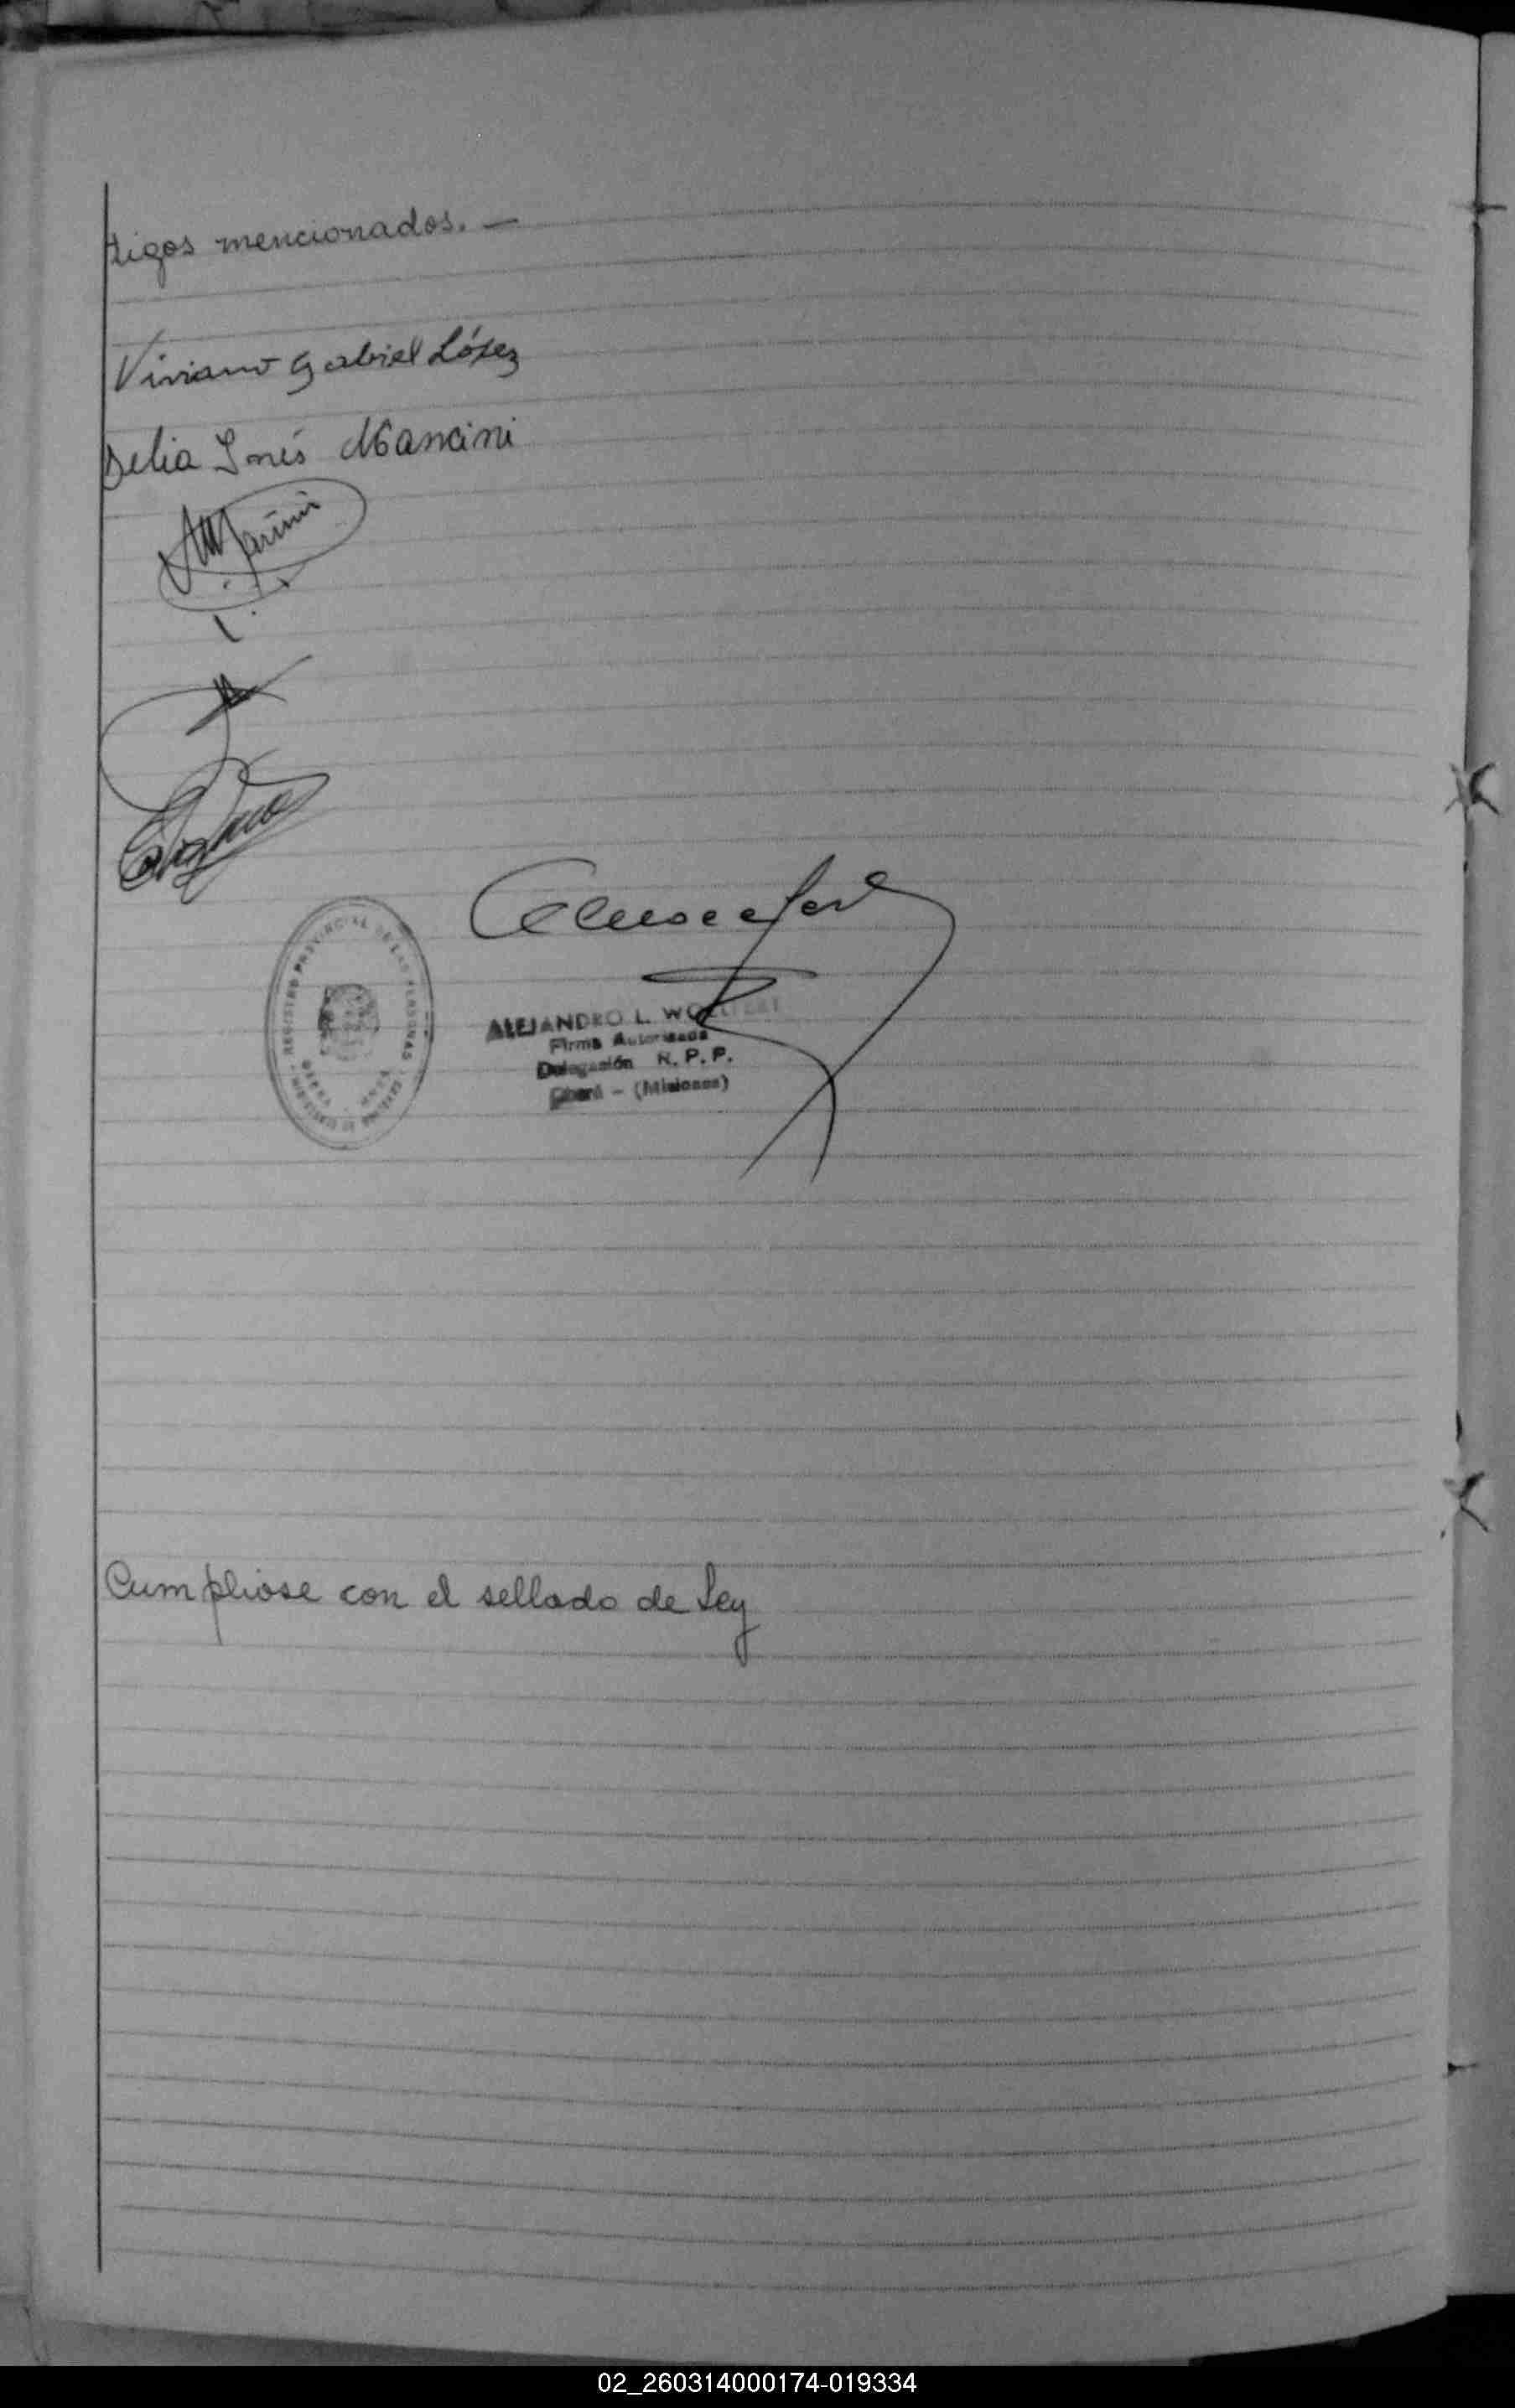 tigos mencionados. —
Viviano Gabriel López
Delia Inés Mancini
REGISTRO PROVINCIAL DE LAS PERSONAS
ALEJANDRO L.
Firma Autorizada
Delegación R. P. P.
(Misiones)
Cumpliose con el sellado de Ley
02_260314000174-019334